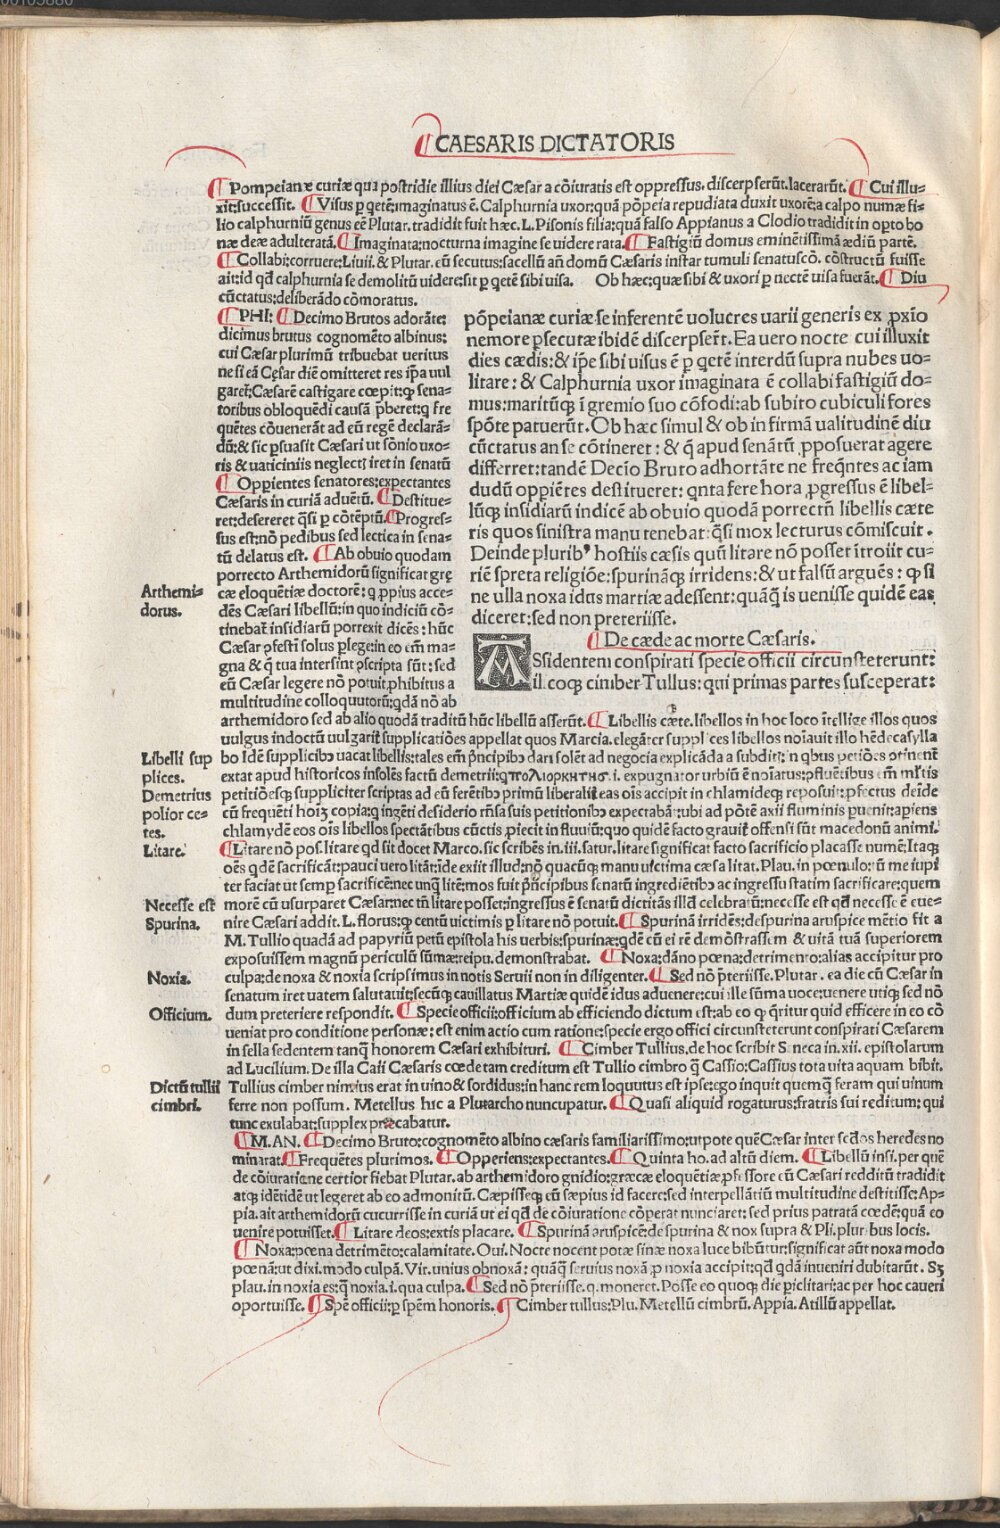 CAESARIS DICTATORIS
¶ Pompeianæ curiæ qua postridie illius diei Cæsar a cōiuratis est oppressus. discerpserūt. lacerarūt. ¶ Cui illu-
xit: successit. ¶ Visus p qetē: imaginatus ē. Calphurnia uxor: quā pōpeia repudiata duxit uxorē: a calpo numæ fi-
lio calphurniū genus eē Plutar. tradidit fuit hæc. L. Pisonis filia: quā falso Appianus a Clodio tradidit in opto bo
næ deæ adulteratā. ¶ Imaginata: nocturna imagine se uidere rata. ¶ Fastigiū domus eminētissimā ædiū partē.
¶ Collabi: corruere: Liuii. & Plutar. eū secutus: sacellū an̄ domū Cæsaris instar tumuli senatuscō. cōstructū fuisse
ait: id qd̄ calphurnia se demolitū uidere: sit p qetē sibi uisa. Ob hæc: quæ sibi & uxori p nectē uisa fuerāt. ¶ Diu
cūctatus: deliberādo cōmoratus.
¶ PHI: ¶ Decimo Brutos adorāte:
dicimus brutus cognomēto albinus:
cui Cæsar plurimū tribuebat ueritus
ne si eā Cęsar diē omitteret res ip̄a uul
garet: Cæsarē castigare cœpit: ꝙ sena-
toribus obloquēdi causā p̄beret: ꝙ fre
quētes cōuenerāt ad eū regē declarā-
dū: & sic psuasit Cæsari ut sōnio uxo-
ris & uaticiniis neglect; iret in senatū
¶ Oppientes senatores: expectantes
Cæsaris in curiā aduētū. ¶ Destitue-
ret: desereret q̄si p cōtēptū. ¶ Progres-
sus est: nō pedibus sed lectica in sena-
tū delatus est. ¶ Ab obuio quodam
porrecto Arthemidorū significat gre
cæ eloquētiæ doctorē: ꝗ ꝓpius acce-
dēs Cæsari libellū: in quo indiciū cō-
tinebat̄ insidiarū porrexit dicēs: hūc
Cæsar ꝓfestī solus plege: in eo em̄ ma-
gna & ꝗ̄ tua intersint ꝑscripta sūt: sed
eū Cæsar legere nō potuit, phibitus a
multitudine colloquutorū: qdā nō ab
arthemidoro sed ab alio quodā traditū hūc libellū asserūt. ¶ Libellis cæte. libellos in hoc loco ītellige illos quos
pōpeianæ curiæ se inferentē uolucres uarii generis ex ꝓxio
nemore psecutæ ibidē discerpser̄t. Ea uero nocte cui illuxit
dies cædis: & ip̄e sibi uisus ē p qetē interdū supra nubes uo-
litare: & Calphurnia uxor imaginata ē collabi fastigiū do-
mus: maritūq; ī gremio suo cōfodi: ab subito cubiculi fores
spōte patuerūt. Ob hæc simul & ob in firmā ualitudinē diu
cūctatus an se cōtineret: & q̄ apud senatū ꝓposuerat agere
differret: tandē Decīo Bruto adhortāte ne freq̄ntes ac iam
dudū oppiētes destitueret: qnta fere hora ꝓgressus ē libel-
lūq; insidiarū indicē ab obuio quodā porrectū libellis cæte
ris quos sinistra manu tenebat: q̄si mox lecturus cōmiscuit.
Deinde plurib' hostiis cæsis quū litare nō posset ītroiit cu-
riē spreta religiōe: spurināq; irridens: & ut falsū arguēs: ꝙ si
ne ulla noxa idus martiæ adessent: quāq̄ is uenisse quidē eas
diceret: sed non preteriisse.
¶ De cæde ac morte Cæsaris.
ASsidentem conspirati specie officii circunsteterunt:
il.coq; cimber Tullus: qui primas partes susceperat:
uulgus indoctū uulgarit̄ supplicatiōes appellat quos Marcia. elegāter supplices libellos noīauit illo hēdecasylla
bo Idē supplicibꝰ uacat libellis: tales em̄ p̄ncipibꝰ dari solēt ad negocia explicāda a subditis: in qbus petiōes ꝯtinent̄
extat apud historicos insolēs factū demetrii: ꝗ πολιορκητησ. i. expugnator urbiū ē noīatus: ꝓfluētibus em̄ ml'tis
petitiōesq; suppliciter scriptas ad eū ferētibꝰ primū liberalit̄ eas oīs accipit in chlamideq; reposuit: ꝓfectus deīde
cū frequēti hoīꝝ copia: ꝗ ingēti desiderio rn̄sa suis petitionibꝰ expectabāt: ubi ad pōtē axii fluminis puenit: apiens
chlamydē eos oīs libellos spectātibus cūctis ꝓiecit in fluuiū: quo quidē facto grauit̄ offensi sūt macedonū animi.
¶ Litare nō pos. litare qd̄ sit docet Marco. sic scribēs in. iii. satur. litare significat facto sacrificio placasse numē: Itaq;
oēs qdē sacrificāt: pauci uero litāt: īde exiit illud: nō quacūq; manu uictima cæsa litat. Plau. in pœnulo: tū me iupi
ter faciat ut semp sacrificē: nec unq̄ litē: mos fuit p̄ncipibus senatū ingrediētibꝰ ac ingressu statim sacrificare: quem
morē cū usurparet Cæsar: nec tn̄ litare posset: ingressus ē senatū dictitās illd̄ celebratū: necesse est qd̄ necesse ē eue-
nire Cæsari addit. L. florus: ꝙ centū uictimis p litare nō potuit. ¶ Spurinā irridēs: de spurina aruspice mētio fit a
M. Tullio quadā ad papyriū petū epistola his uerbis: spurinæ: qdē cū ei rē demōstrassem & uitā tuā superiorem
exposuissem magnū periculū sūmæ: reipu. demonstrabat. ¶ Noxa: dāno pœna: detrimēto: alias accipitur pro
culpa: de noxa & noxia scripsimus in notis Seruii non in diligenter. ¶ Sed nō p̄teriisse. Plutar. ea die cū Cæsar in
senatum iret uatem salutauit: secūq; cauillatus Martiæ quidē idus aduenere: cui ille sūma uoce: uenere utiq; sed nō
dum preteriere respondit. ¶ Specie officii: officium ab efficiendo dictum est: ab eo ꝙ q̄ritur quid efficere in eo cō
ueniat pro conditione personæ: est enim actio cum ratione: specie ergo offici circunsteterunt conspirati Cæsarem
in sella sedentem tanq̄ honorem Cæsari exhibituri. ¶ Cimber Tullius. de hoc scribit Seneca in. xii. epistolarum
ad Lucilium. De illa Caii Cæsaris cœde tam creditum est Tullio cimbro q̄ Cassio: Cassius tota uita aquam bibit.
Tullius cimber nimius erat in uino & sordidus: in hanc rem loquutus est ipse: ego inquit quemq̄ feram qui uinum
ferre non possum. Metellus hic a Plutarcho nuncupatur. ¶ Quasi aliquid rogaturus: fratris sui reditum: qui
tunc exulabat: supplex præcabatur.
¶ M. AN. ¶ Decimo Bruto: cognomēto albino cæsaris familiarissimo: utpote quē Cæsar inter sedos heredes no
minarat. ¶ Frequētes plurimos. ¶ Opperiens: expectantes. ¶ Quinta ho. ad altū diem. ¶ Libellū insi. per quē
de cōiuratione certior fiebat Plutar. ab arthemidoro gnidio: græcæ eloquētiæ ꝓfessore cū Cæsari redditū tradidit
atq; idētidē ut legeret ab eo admonitū. Cæpisseq; cū sæpius id facere: sed interpellātiū multitudine destitisse: Ap-
pia. ait arthemidorū cucurrisse in curiā ut ei qd̄ de cōiuratione cōperat nunciaret: sed prius patratā cœdē: quā eo
uenire potuisset. ¶ Litare deos: extis placare. ¶ Spurinā aruspicē: de spurina & nox supra & Pli. pluribus locis.
¶ Noxa: pœna detrimēto: calamitate. Oui. Nocte nocent potæ sinæ noxa luce bibūtur: significat aūt noxa modo
pœnā: ut dixi. modo culpā. Vir. unius obnoxā: quāq̄ seruius noxā ꝓ noxia accipit: qd̄ qdā inueniri dubitarūt. Sꝫ
plau. in noxia es: q̄ noxia. i. qua culpa. ¶ Sed nō p̄teriisse. q. moneret. Posse eo quoq; die piclitari: ac per hoc caueri
oportuisse. ¶ Spē officii: p spēm honoris. ¶ Cimber tullus: Plu. Metellū cimbrū. Appia. Atillū appellat.
Arthemi-
dorus.
Libelli sup
plices.
Demetrius
polior ce-
tes.
Litare.
Necesse est
Spurina.
Noxia.
Officium.
Dictū tullii
cimbri.